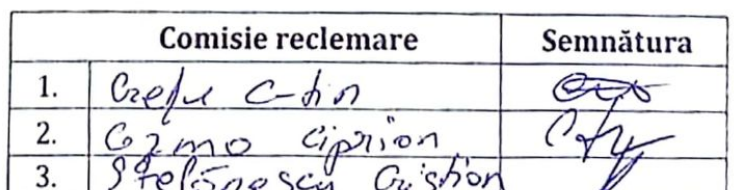 Comisie reclemare Semnătura
1. Crețu C-tin
2. Cozmo Ciprion
3. Ștefănescu Cristion